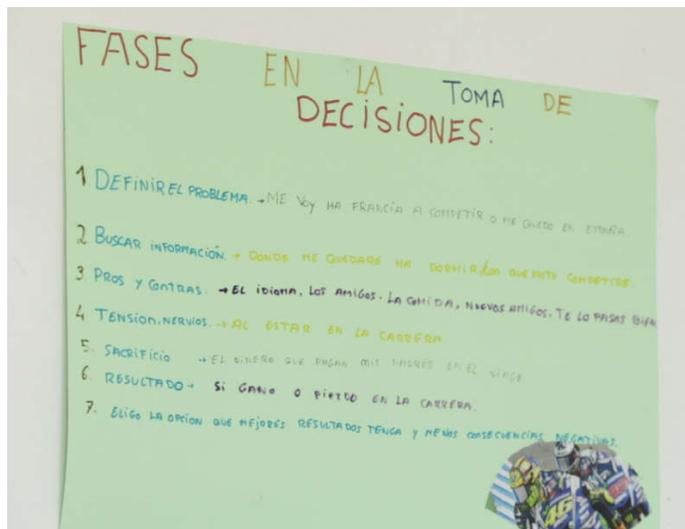 FASES EN LA TOMA DE
DECISIONES:
1 DEFINIR EL PROBLEMA. → ME VOY HA FRANCIA A COMPETIR O ME QUEDO EN ESPAÑA
2 BUSCAR INFORMACIÓN. → DONDE ME QUEDARE HA DORMIR, CON QUE MOTO COMPETIRE.
3 PROS Y CONTRAS. → EL IDIOMA, LOS AMIGOS. LA COMIDA, NUEVOS AMIGOS. TE LO PASAS BIEN
4 TENSION, NERVIOS. → AL ESTAR EN LA CARRERA
5. SACRIFICIO → EL DINERO QUE PAGAN MIS PADRES EN EL VIAGE
6. RESULTADO → SI GANO O PIERDO EN LA CARRERA.
7. ELIGO LA OPCION QUE MEJORES RESULTADOS TENGA Y MENOS CONSECUENCIAS NEGATIVAS.
46